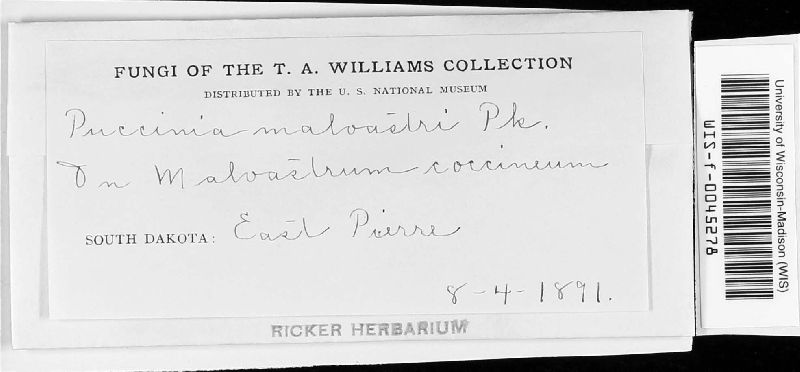 FUNGI OF THE T. A. WILLIAMS COLLECTION
DISTRIBUTED BY THE U. S. NATIONAL MUSEUM
Puccinia malvastri Pk.
On Malvastrum coccineum
SOUTH DAKOTA: East Pierre
8-4-1891.
RICKER HERBARIUM
University of Wisconsin-Madison (WIS)
WIS-f-0045278